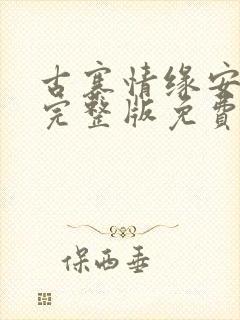 古寨情缘安
完整版免費
保西垂